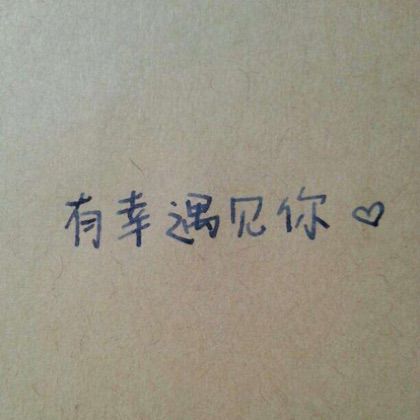 有幸遇见你♡